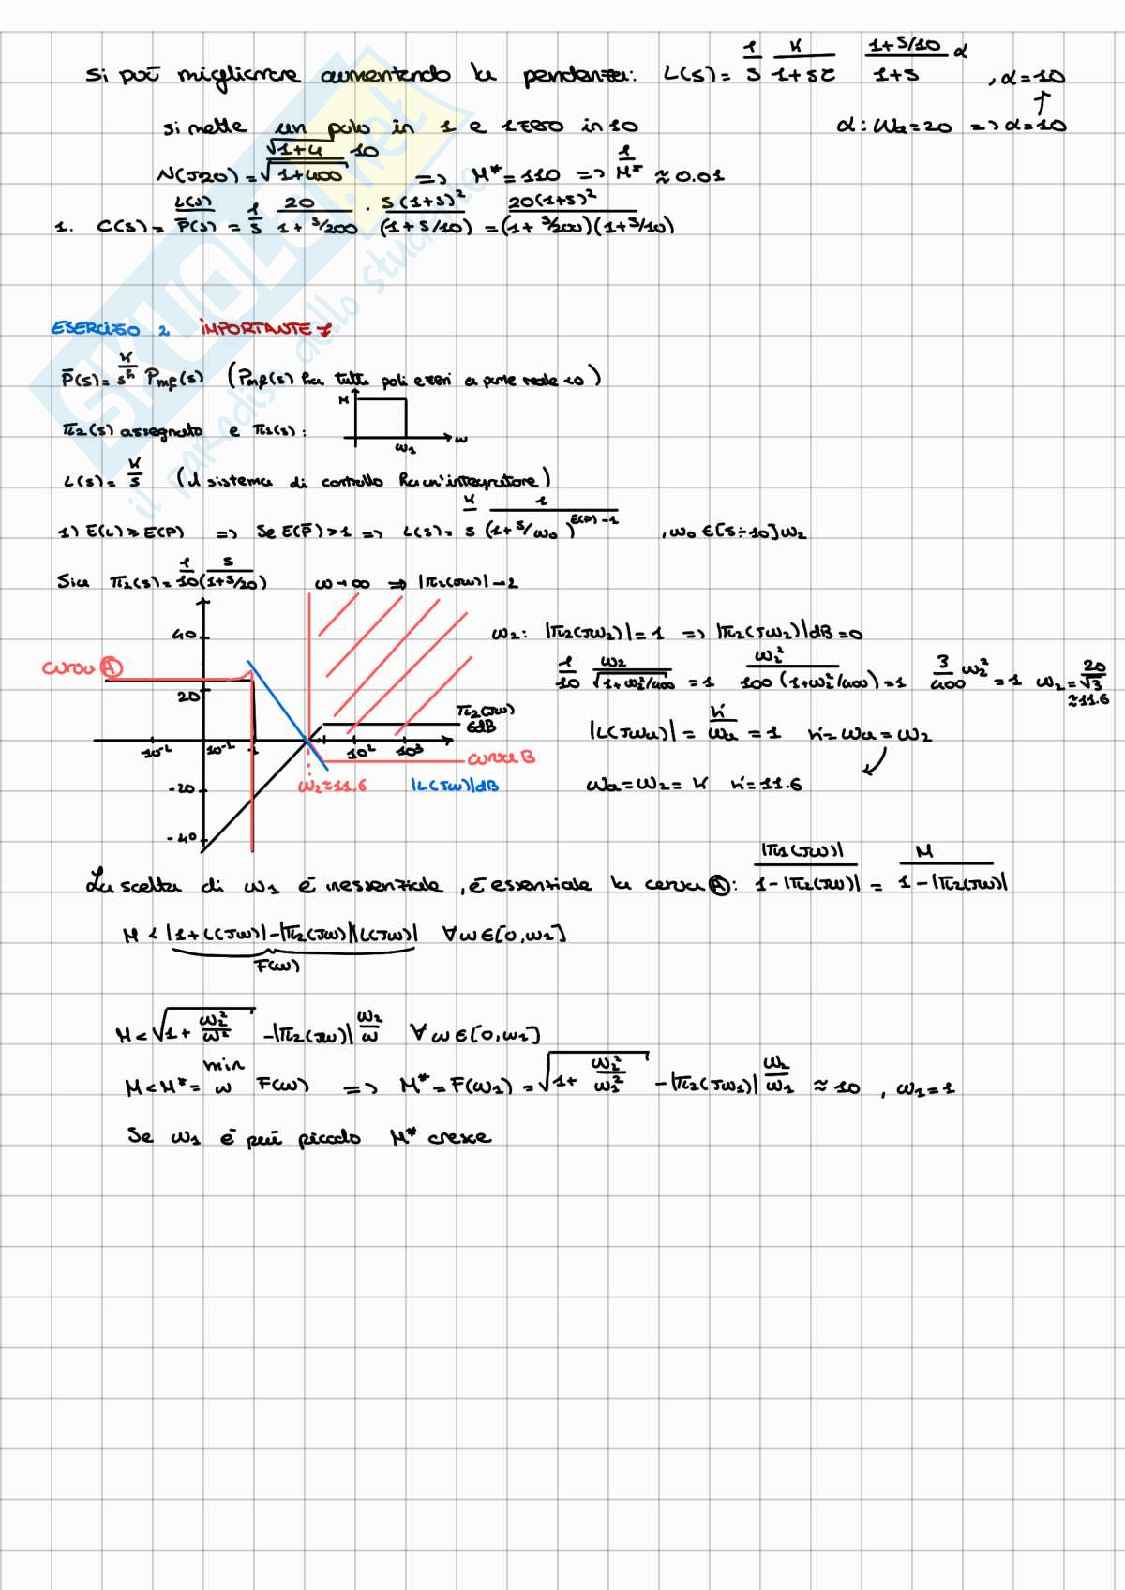 Si può migliorare aumentando la pendenza: L(s) = 1/s K/(1+sτ) (1+s/10)/(1+s) α , α=10
si mette un polo in 1 e 1 zero in 10
α: ωa=20 => α=10
N(J20) = √(1+4)/√(1+400) 10 => M* = 110 => 1/M* ≈ 0.01
1. C(s) = L(s)/P̄(s) = 1/s 20/(1+s/200) · s(1+s)²/(1+s/10) = 20(1+s)²/(1+s/200)(1+s/10)
ESERCIZIO 2 IMPORTANTE 1
P̄(s) = K/sʰ Pmf(s) (Pmf(s) ha tutti poli e zeri a parte reale <0)
π2(s) assegnato e π1(s):
M
ω
ω1
L(s) = K/s (il sistema di controllo ha un'integratore)
1) E(L) ≥ E(P) => Se E(P̄) > 1 => L(s) = K/s 1/(1+s/ω0)^(E(P)-1) , ω0 ∈ [5÷10]ω2
Sia π2(s) = 1/10 s/(1+s/20) ω→∞ => |π2(Jω)| → 2
40
curva A
20
-20
-40
10⁻²
10⁻¹
1
10²
10³
π2(Jω)
6dB
curva B
ω2=11.6
|L(Jω)|dB
ω2: |π2(Jω2)| = 1 => |π2(Jω2)|dB = 0
1/10 ω2/√(1+ω2²/400) = 1 ω2²/100(1+ω2²/400) = 1 3/400 ω2² = 1 ω2 = 20/√3 ≈ 11.6
|L(Jωa)| = K/ωa = 1 K = ωa = ω2
ωa = ω2 = K K = 11.6
La scelta di ω1 è inessenziale, è essenziale la curva A: |π1(Jω)|/1-|π2(Jω)| = M/1-|π2(Jω)|
M < |1+L(Jω)| - |π2(Jω)||L(Jω)| ∀ω ∈ [0,ω1]
F(ω)
M < √(1+ω2²/ω²) - |π2(Jω)| ω2/ω ∀ω ∈ [0,ω1]
M < M* = min ω F(ω) => M* = F(ω1) = √(1+ω2²/ω1²) - |π2(Jω1)| ω2/ω1 ≈ 10 , ω1=1
Se ω1 è più piccolo M* cresce